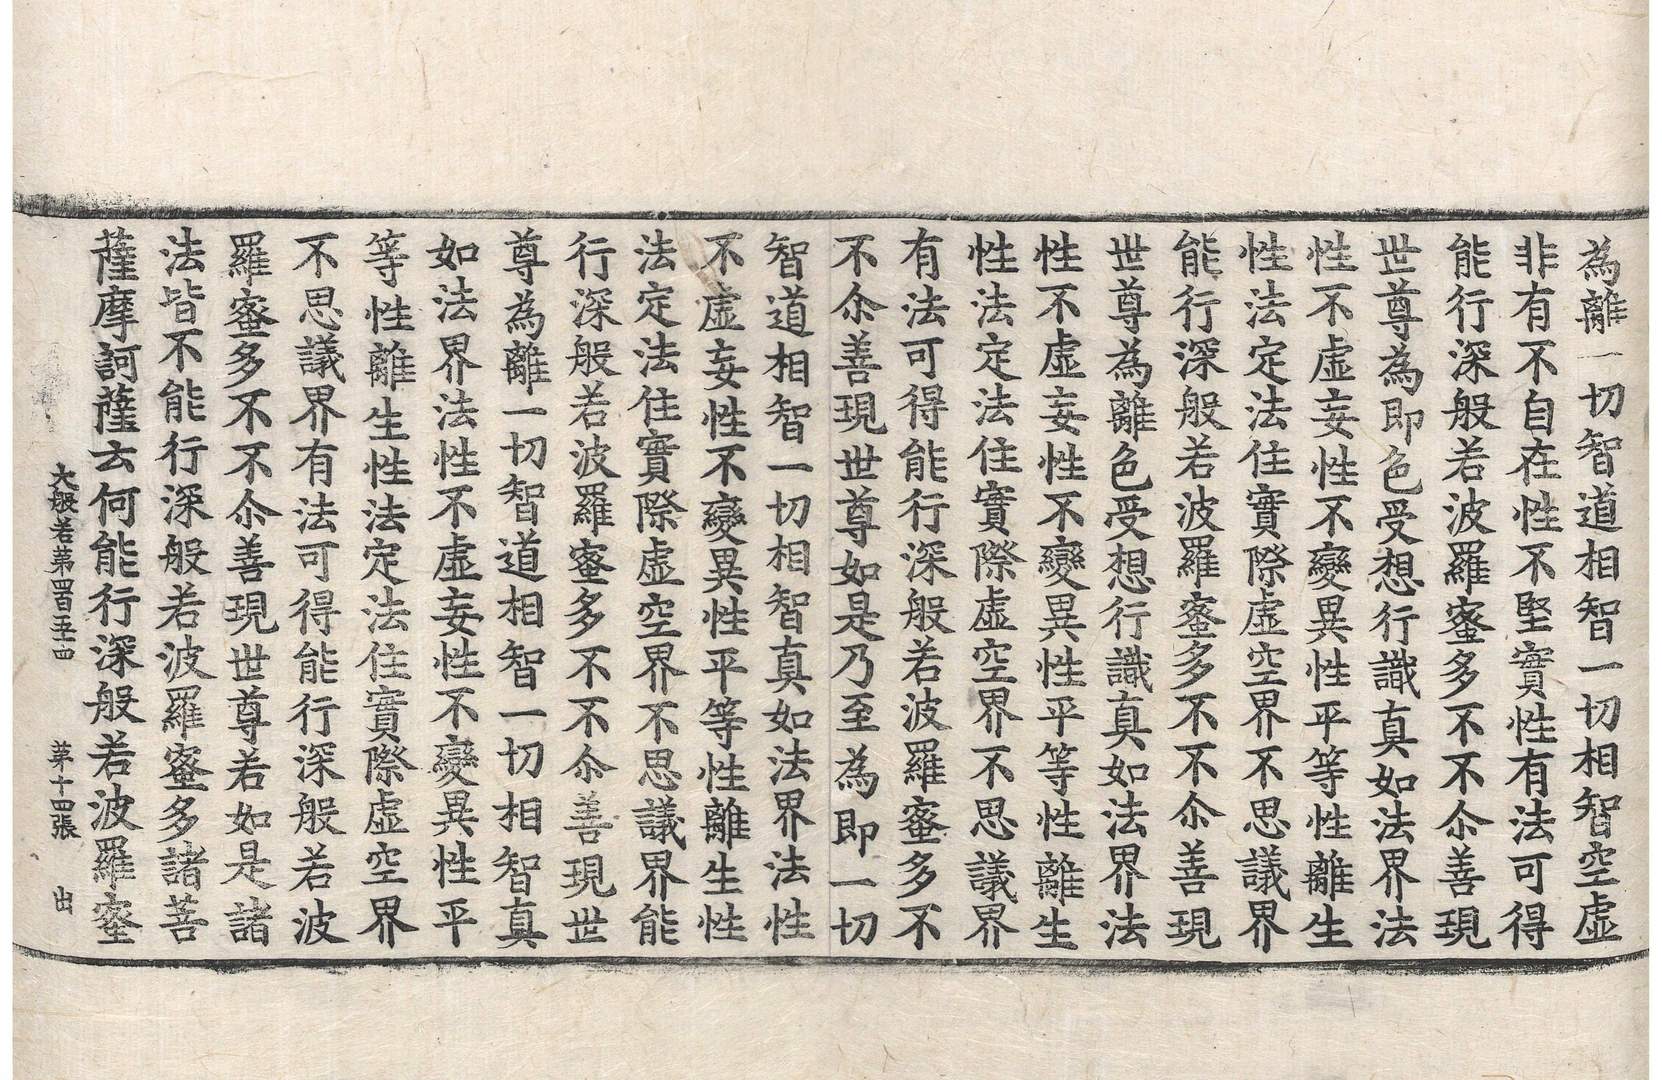 為離一切智道相智一切相智空虛
非有不自在性不堅實性有法可得
能行深般若波羅蜜多不不尒善現
世尊為即色受想行識真如法界法
性不虛妄性不變異性平等性離生
性法定法住實際虛空界不思議界
能行深般若波羅蜜多不不尒善現
世尊為離色受想行識真如法界法
性不虛妄性不變異性平等性離生
性法定法住實際虛空界不思議界
有法可得能行深般若波羅蜜多不
不尒善現世尊如是乃至為即一切
智道相智一切相智真如法界法性
不虛妄性不變異性平等性離生性
法定法住實際虛空界不思議界能
行深般若波羅蜜多不不尒善現世
尊為離一切智道相智一切相智真
如法界法性不虛妄性不變異性平
等性離生性法定法住實際虛空界
不思議界有法可得能行深般若波
羅蜜多不不尒善現世尊若如是諸
法皆不能行深般若波羅蜜多諸菩
薩摩訶薩云何能行深般若波羅蜜
大般若第四百五十四 第十四張 出